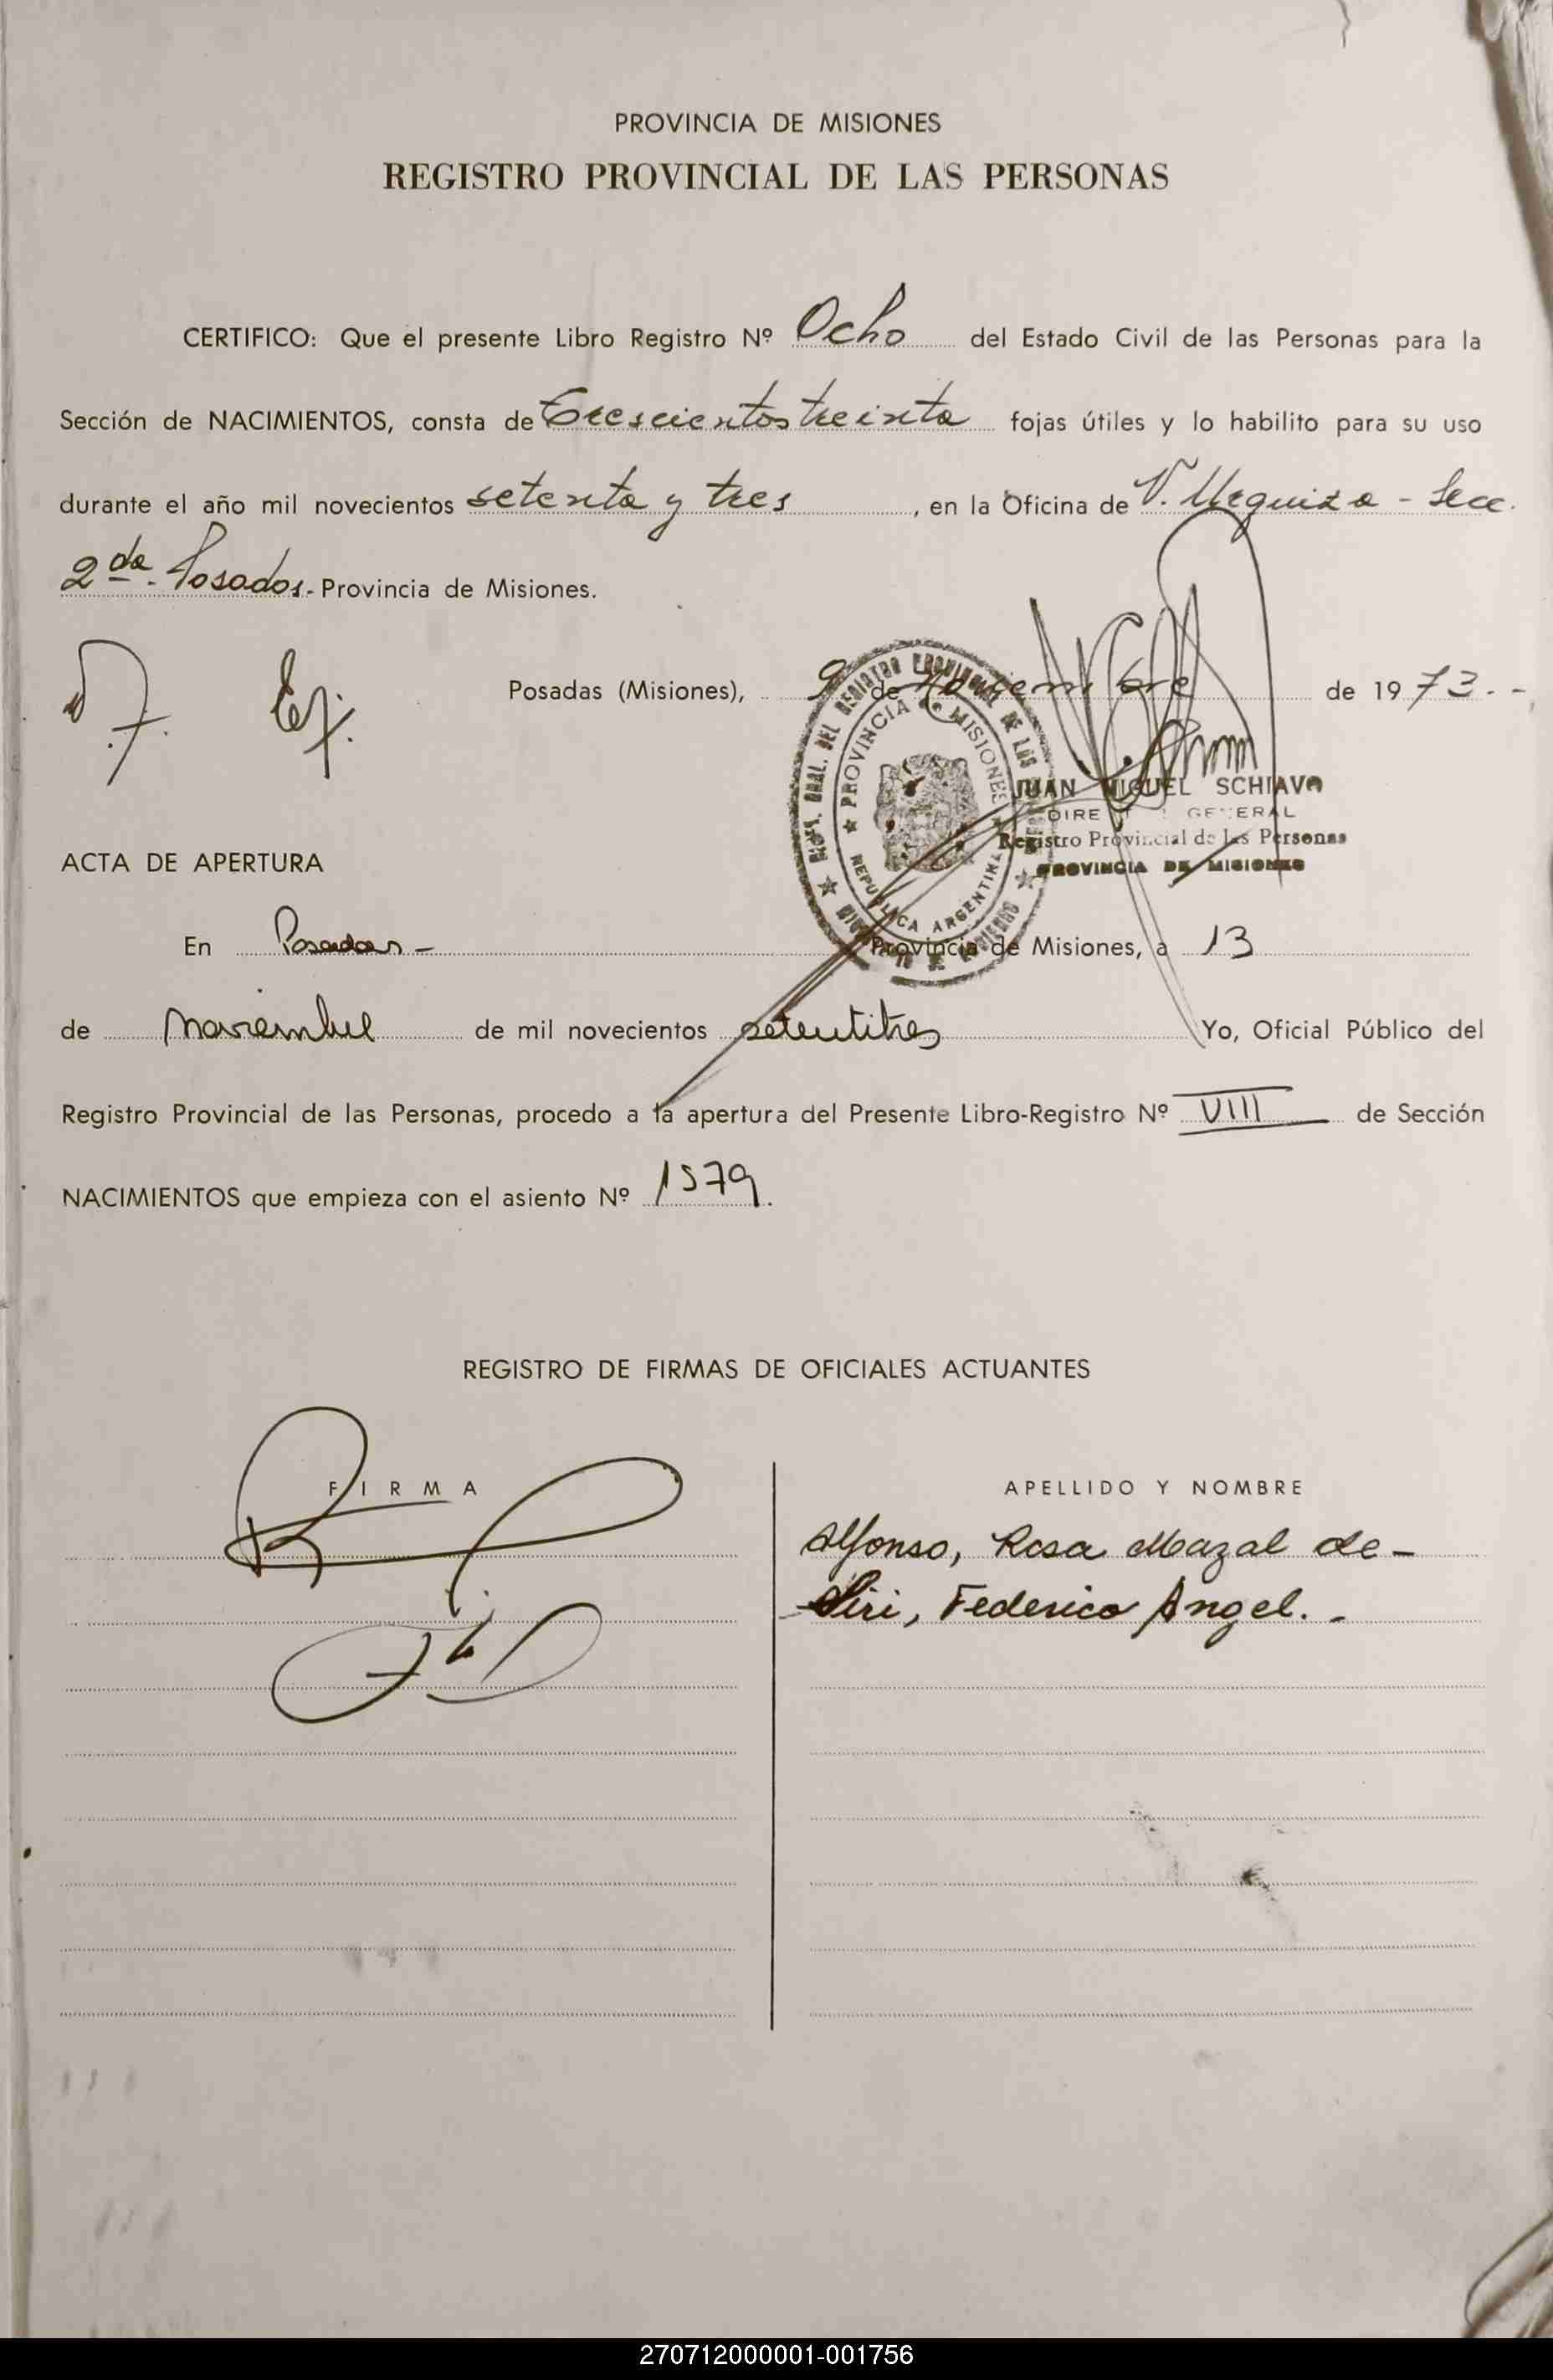 PROVINCIA DE MISIONES
REGISTRO PROVINCIAL DE LAS PERSONAS
CERTIFICO: Que el presente Libro Registro Nº Ocho del Estado Civil de las Personas para la
Sección de NACIMIENTOS, consta de Trescientos treinta fojas útiles y lo habilito para su uso
durante el año mil novecientos setenta y tres, en la Oficina de V. Urquiza - Secc.
2da. Posadas.- Provincia de Misiones.
Ej.
Posadas (Misiones), 9 de Noviembre de 1973.-
JUAN MIGUEL SCHIAVO
GENERAL
Registro Provincial de las Personas
PROVINCIA DE MISIONES
PROVINCIA DE MISIONES
REPUBLICA ARGENTINA
ACTA DE APERTURA
En Posadas - Provincia de Misiones, a 13
de noviembre de mil novecientos setentitres Yo, Oficial Público del
Registro Provincial de las Personas, procedo a la apertura del Presente Libro-Registro Nº VIII de Sección
NACIMIENTOS que empieza con el asiento Nº 1579.
REGISTRO DE FIRMAS DE OFICIALES ACTUANTES
FIRMA
APELLIDO Y NOMBRE
Alfonso, Rosa Mazal de-
Siri, Federico Angel.-
270712000001-001756